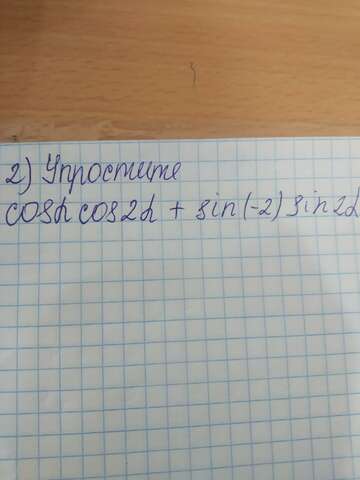 2) Упростите
cosα cos2α + sin(-2) sin2α